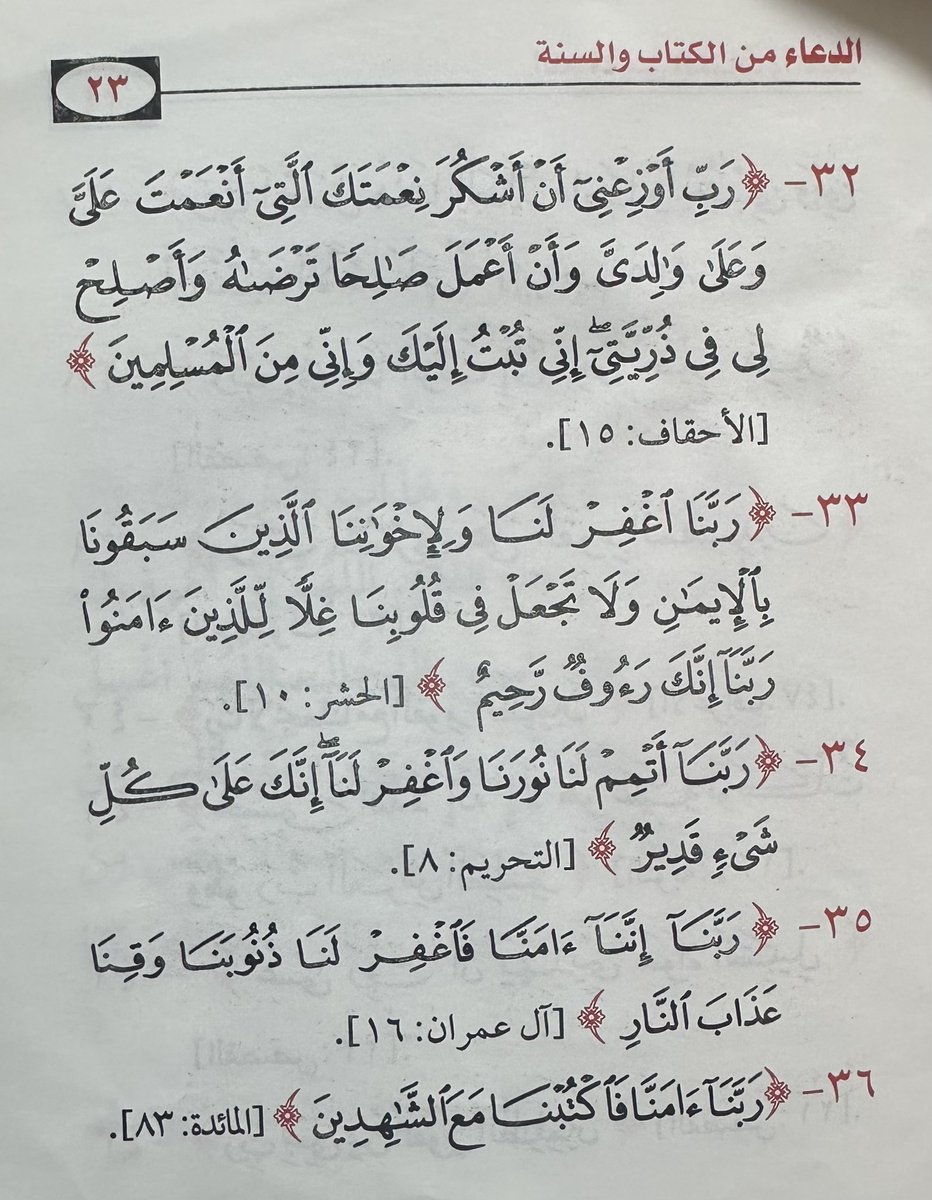 الدعاء من الكتاب والسنة
٢٣
٣٢- ﴿رَبِّ أَوْزِعْنِىٓ أَنْ أَشْكُرَ نِعْمَتَكَ ٱلَّتِىٓ أَنْعَمْتَ عَلَىَّ
وَعَلَىٰ وَٰلِدَىَّ وَأَنْ أَعْمَلَ صَٰلِحًا تَرْضَىٰهُ وَأَصْلِحْ
لِى فِى ذُرِّيَّتِىٓ ۖ إِنِّى تُبْتُ إِلَيْكَ وَإِنِّى مِنَ ٱلْمُسْلِمِينَ ﴾
[الأحقاف: ١٥].
٣٣- ﴿رَبَّنَا ٱغْفِرْ لَنَا وَلِإِخْوَٰنِنَا ٱلَّذِينَ سَبَقُونَا
بِٱلْإِيمَٰنِ وَلَا تَجْعَلْ فِى قُلُوبِنَا غِلًّا لِّلَّذِينَ ءَامَنُوا۟
رَبَّنَآ إِنَّكَ رَءُوفٌ رَّحِيمٌ ﴾ [الحشر: ١٠].
٣٤- ﴿رَبَّنَآ أَتْمِمْ لَنَا نُورَنَا وَٱغْفِرْ لَنَآ ۖ إِنَّكَ عَلَىٰ كُلِّ
شَىْءٍ قَدِيرٌ ﴾ [التحريم: ٨].
٣٥- ﴿رَبَّنَآ إِنَّنَآ ءَامَنَّا فَٱغْفِرْ لَنَا ذُنُوبَنَا وَقِنَا
عَذَابَ ٱلنَّارِ ﴾ [آل عمران: ١٦].
٣٦- ﴿رَبَّنَآ ءَامَنَّا فَٱكْتُبْنَا مَعَ ٱلشَّٰهِدِينَ ﴾ [المائدة: ٨٣].